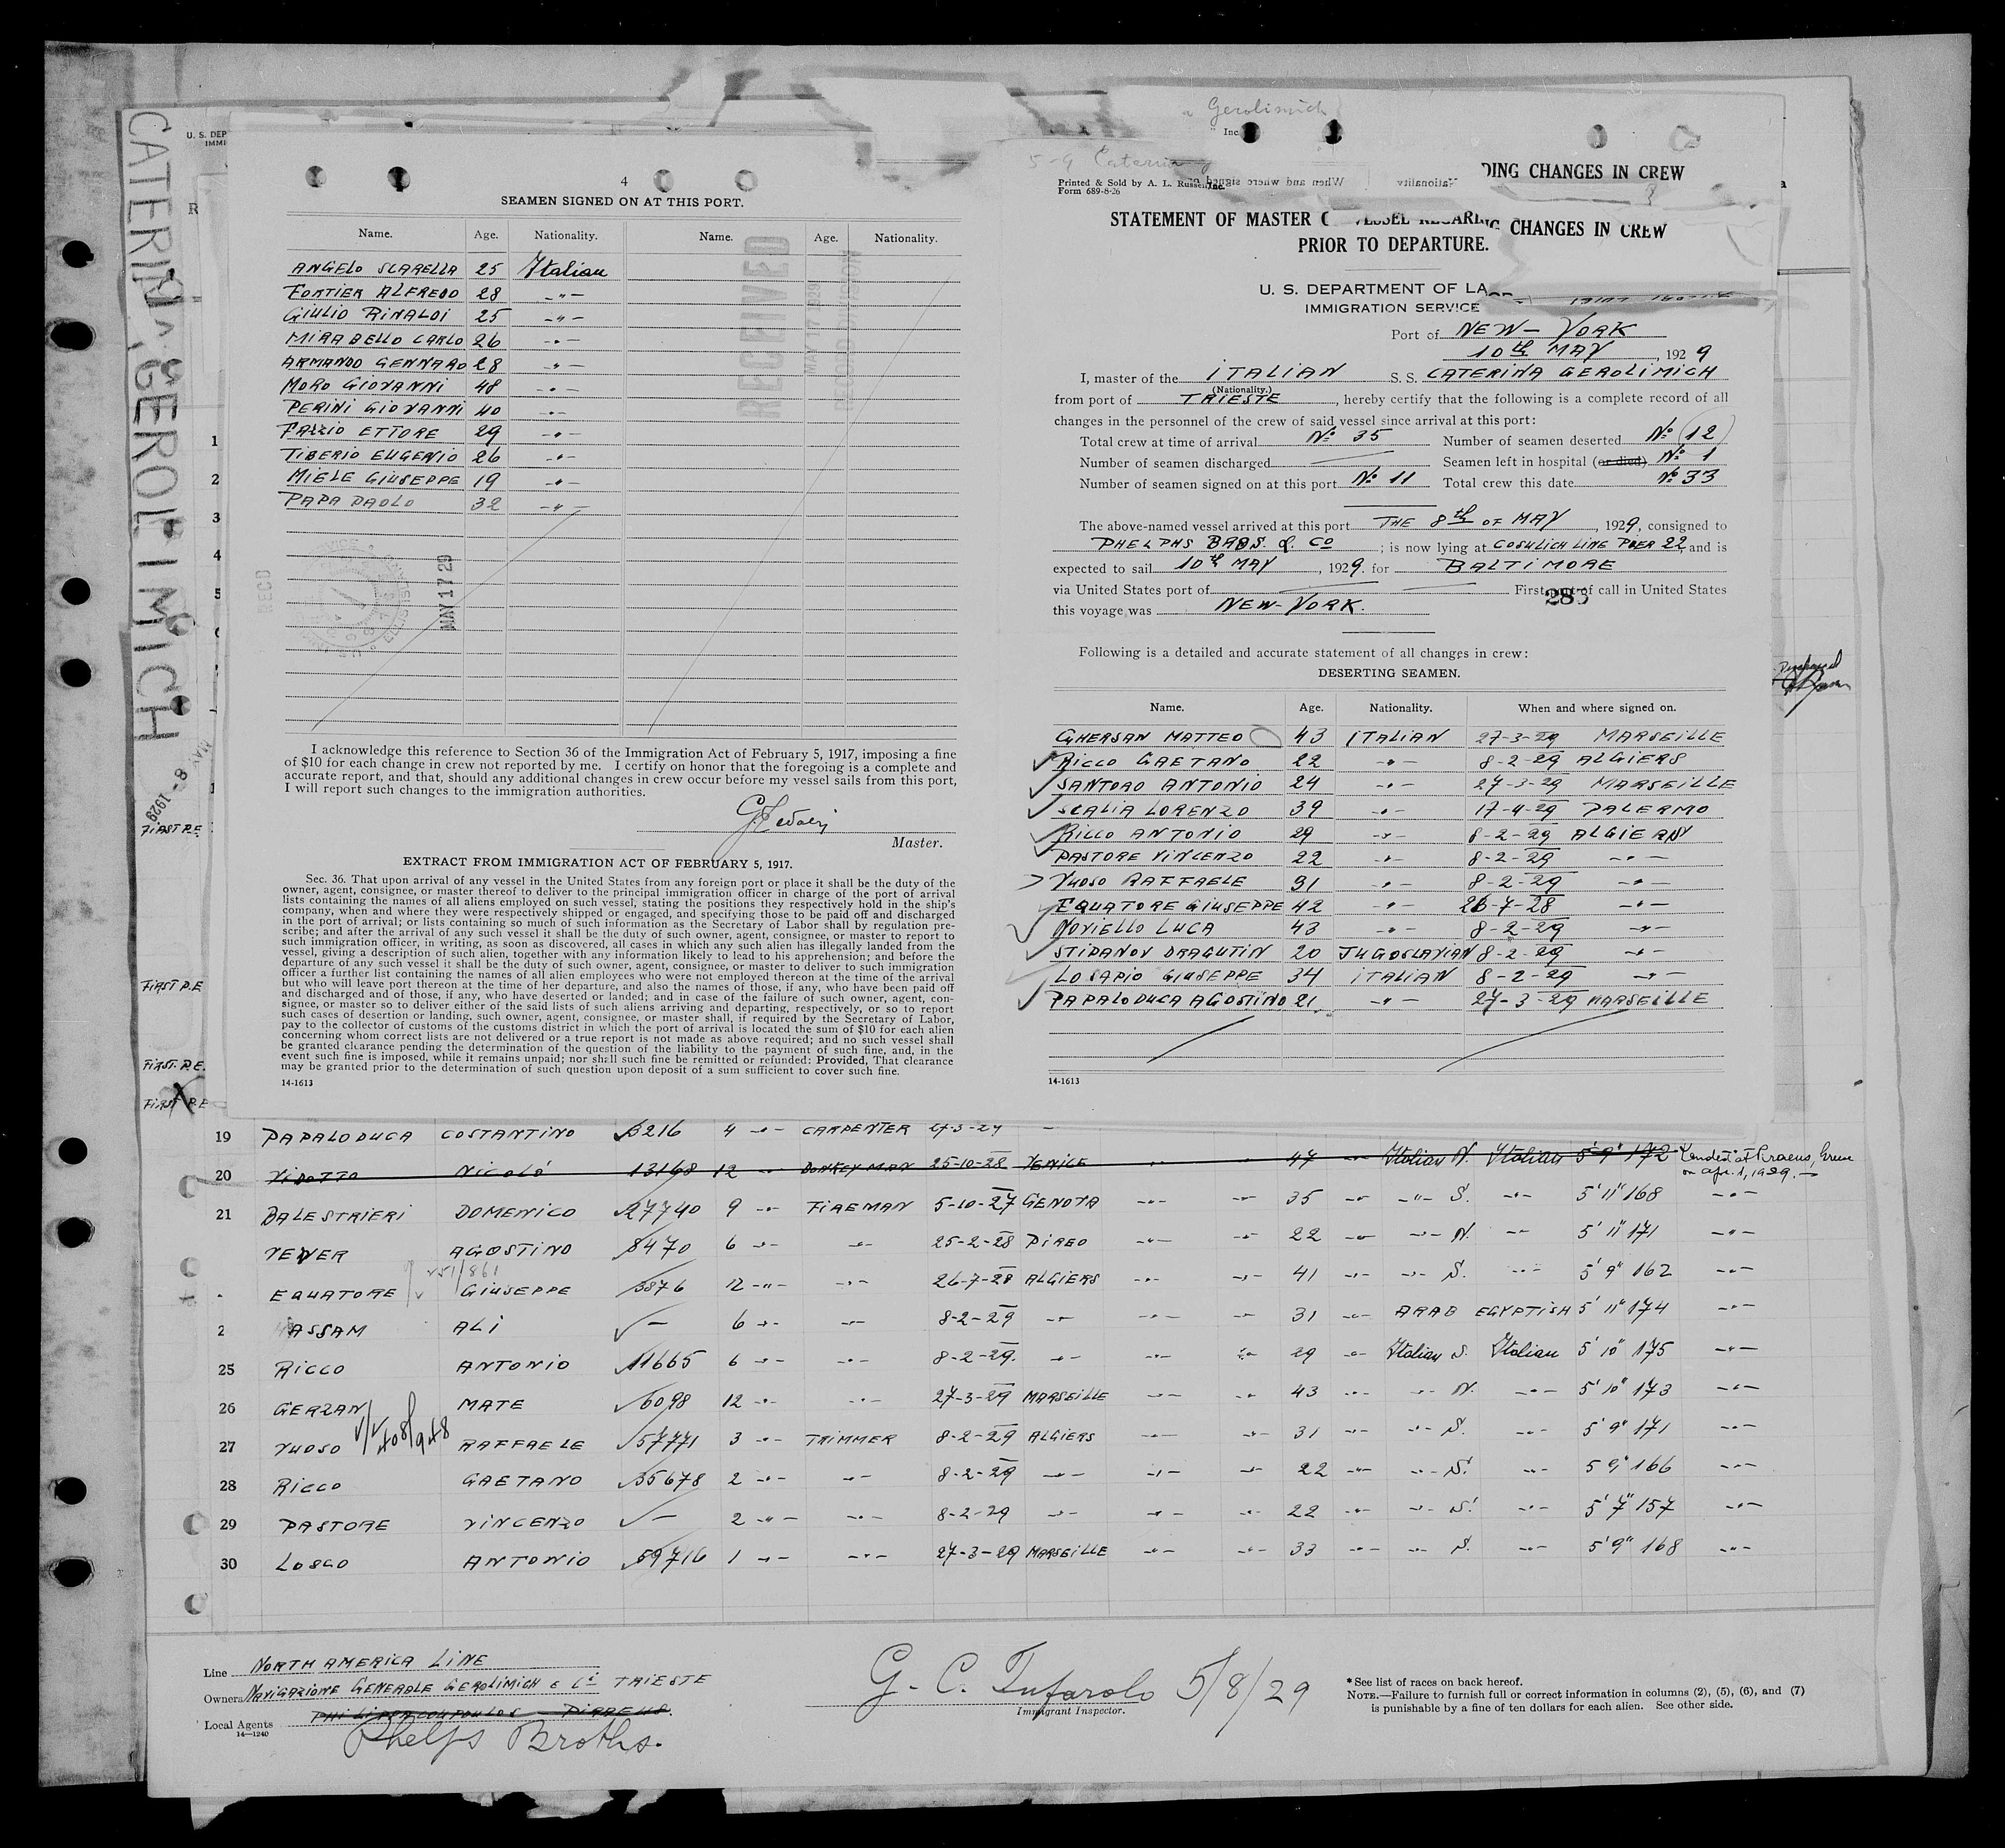 CATERINA GEROLIMICH
MAY 8 - 1929
U. S. DEP
IMMI
R
1
2
3
4
5
FIRST P.E
FIRST P.E
FIRST. P.E.
FIRST P.E
4
SEAMEN SIGNED ON AT THIS PORT.
Name. Age. Nationality. Name. Age. Nationality.
ANGELO SCARELLA 25 Italian
FORTIER ALFREDO 28 -"-
GIULIO RINALDI 25 -"-
MIRABELLO CARLO 26 -"-
ARMANDO GENNARO 28 -"-
MORO GIOVANNI 48 -"-
PERINI GIOVANNI 40 -"-
FAZZIO ETTORE 29 -"-
TIBERIO EUGENIO 26 -"-
MIELE GIUSEPPE 19 -"-
PAPA PAOLO 32 -"-
RECEIVED
MAY 17 1929
RECORD DIVISION
REC'D
MAY 17 29
I acknowledge this reference to Section 36 of the Immigration Act of February 5, 1917, imposing a fine
of $10 for each change in crew not reported by me. I certify on honor that the foregoing is a complete and
accurate report, and that, should any additional changes in crew occur before my vessel sails from this port,
I will report such changes to the immigration authorities.
Master.
EXTRACT FROM IMMIGRATION ACT OF FEBRUARY 5, 1917.
Sec. 36. That upon arrival of any vessel in the United States from any foreign port or place it shall be the duty of the
owner, agent, consignee, or master thereof to deliver to the principal immigration officer in charge of the port of arrival
lists containing the names of all aliens employed on such vessel, stating the positions they respectively hold in the ship's
company, when and where they were respectively shipped or engaged, and specifying those to be paid off and discharged
in the port of arrival; or lists containing so much of such information as the Secretary of Labor shall by regulation pre-
scribe; and after the arrival of any such vessel it shall be the duty of such owner, agent, consignee, or master to report to
such immigration officer, in writing, as soon as discovered, all cases in which any such alien has illegally landed from the
vessel, giving a description of such alien, together with any information likely to lead to his apprehension; and before the
departure of any such vessel it shall be the duty of such owner, agent, consignee, or master to deliver to such immigration
officer a further list containing the names of all alien employees who were not employed thereon at the time of the arrival
but who will leave port thereon at the time of her departure, and also the names of those, if any, who have been paid off
and discharged and of those, if any, who have deserted or landed; and in case of the failure of such owner, agent, con-
signee, or master so to deliver either of the said lists of such aliens arriving and departing, respectively, or so to report
such cases of desertion or landing, such owner, agent, consignee, or master shall, if required by the Secretary of Labor,
pay to the collector of customs of the customs district in which the port of arrival is located the sum of $10 for each alien
concerning whom correct lists are not delivered or a true report is not made as above required; and no such vessel shall
be granted clearance pending the determination of the question of the liability to the payment of such fine, and, in the
event such fine is imposed, while it remains unpaid; nor shall such fine be remitted or refunded: Provided, That clearance
may be granted prior to the determination of such question upon deposit of a sum sufficient to cover such fine.
14-1613
Gerolimich
Inc.
5-9 Caterina
Printed & Sold by A. L. Russell, Inc.
Form 689-8-26
When and where signed on
Nationality
DING CHANGES IN CREW
STATEMENT OF MASTER OF VESSEL REGARDING CHANGES IN CREW
PRIOR TO DEPARTURE.
U. S. DEPARTMENT OF LABOR
IMMIGRATION SERVICE
Port of NEW-YORK
10th MAY, 1929
I, master of the ITALIAN S. S. CATERINA GEROLIMICH
(Nationality.)
from port of TRIESTE, hereby certify that the following is a complete record of all
changes in the personnel of the crew of said vessel since arrival at this port:
Total crew at time of arrival No 35 Number of seamen deserted No 12
Number of seamen discharged Seamen left in hospital (or died) No 1
Number of seamen signed on at this port No 11 Total crew this date No 33
The above-named vessel arrived at this port THE 8th OF MAY, 1929, consigned to
PHELPHS BROS. & Co; is now lying at COSULICH LINE PIER 22 and is
expected to sail 10th MAY, 1929. for BALTIMORE
via United States port of First port of call in United States
this voyage was NEW-YORK.
283
Following is a detailed and accurate statement of all changes in crew:
DESERTING SEAMEN.
Name. Age. Nationality. When and where signed on.
GHERSAN MATTEO 43 ITALIAN 27-3-29 MARSEILLE
RICCO GAETANO 22 -"- 8-2-29 ALGIERS
SANTORO ANTONIO 24 -"- 27-3-29 MARSEILLE
SCALIA LORENZO 39 -"- 17-4-29 PALERMO
RICCO ANTONIO 29 -"- 8-2-29 ALGIERS
PASTORE VINCENZO 22 -"- 8-2-29 -"-
VUOSO RAFFAELE 31 -"- 8-2-29 -"-
EQUATORE GIUSEPPE 42 -"- 26-7-28 -"-
NOVIELLO LUCA 43 -"- 8-2-29 -"-
STIPANOV DRAGUTIN 20 JUGOSLAVIAN 8-2-29 -"-
LOSAPIO GIUSEPPE 34 ITALIAN 8-2-29 -"-
PAPALODUCA AGOSTINO 21 -"- 27-3-29 MARSEILLE
14-1613
19 PAPALODUCA COSTANTINO 3216 4 -"- CARPENTER 27-3-29
20 VIDOTTO NICOLÓ 13168 12 -"- DONKEYMAN 25-10-28 VENICE -"- -"- 47 -"- Italian N. Italian 5' 9" 172 Landed at Piraeus, Greece
on Apr. 1, 1929.
21 BALESTRIERI DOMENICO 27740 9 -"- FIREMAN 5-10-27 GENOVA -"- -"- 35 -"- -"- S. -"- 5' 11" 168 -"-
VENIER AGOSTINO 8470 6 -"- -"- 25-2-28 PIREO -"- -"- 22 -"- -"- N. -"- 5' 11" 171 -"-
251/861
EQUATORE GIUSEPPE 3876 12 -"- -"- 26-7-28 ALGIERS -"- -"- 41 -"- -"- S. -"- 5' 9" 162 -"-
2 HASSAM ALI - 6 -"- -"- 8-2-29 -"- -"- -"- 31 -"- ARAB EGYPTISH 5' 11" 174 -"-
25 RICCO ANTONIO 11665 6 -"- -"- 8-2-29. -"- -"- -"- 29 -"- Italian S. Italian 5' 10" 175 -"-
26 GERZAN MATE 6098 12 -"- -"- 27-3-29 MARSEILLE -"- -"- 43 -"- -"- N. -"- 5' 10" 173 -"-
408/948
27 VUOSO RAFFAELE 57771 3 -"- TRIMMER 8-2-29 ALGIERS -"- -"- 31 -"- -"- S. -"- 5' 9" 171 -"-
28 RICCO GAETANO 35678 2 -"- -"- 8-2-29 -"- -"- -"- 22 -"- -"- S. -"- 5' 9" 166 -"-
29 PASTORE VINCENZO - 2 -"- -"- 8-2-29 -"- -"- -"- 22 -"- -"- S. -"- 5' 7" 157 -"-
30 LOSCO ANTONIO 59716 1 -"- -"- 27-3-29 MARSEILLE -"- -"- 33 -"- -"- S. -"- 5' 9" 168 -"-
Line NORTH AMERICA LINE
Owners NAVIGAZIONE GENERALE GEROLIMICH & Ci TRIESTE
Local Agents PHILIPPACOUPOULOS - PIRREUS.
14-1240
Phelps Broths.
G. C. Tufarolo 5/8/29
Immigrant Inspector.
*See list of races on back hereof.
NOTE.—Failure to furnish full or correct information in columns (2), (5), (6), and (7)
is punishable by a fine of ten dollars for each alien. See other side.